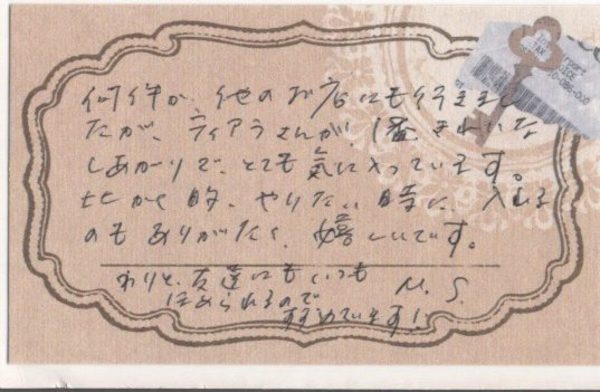 何件か、他のお店にも行きまし
たが、ティアラさんが1番きれいな
しあがりで、とても気に入っています。
比かく的、やりたい時に、入れる
のもありがたく、嬉しいです。
わりと、友達にもいつも
ほめられるので
すすめています!
M. S.